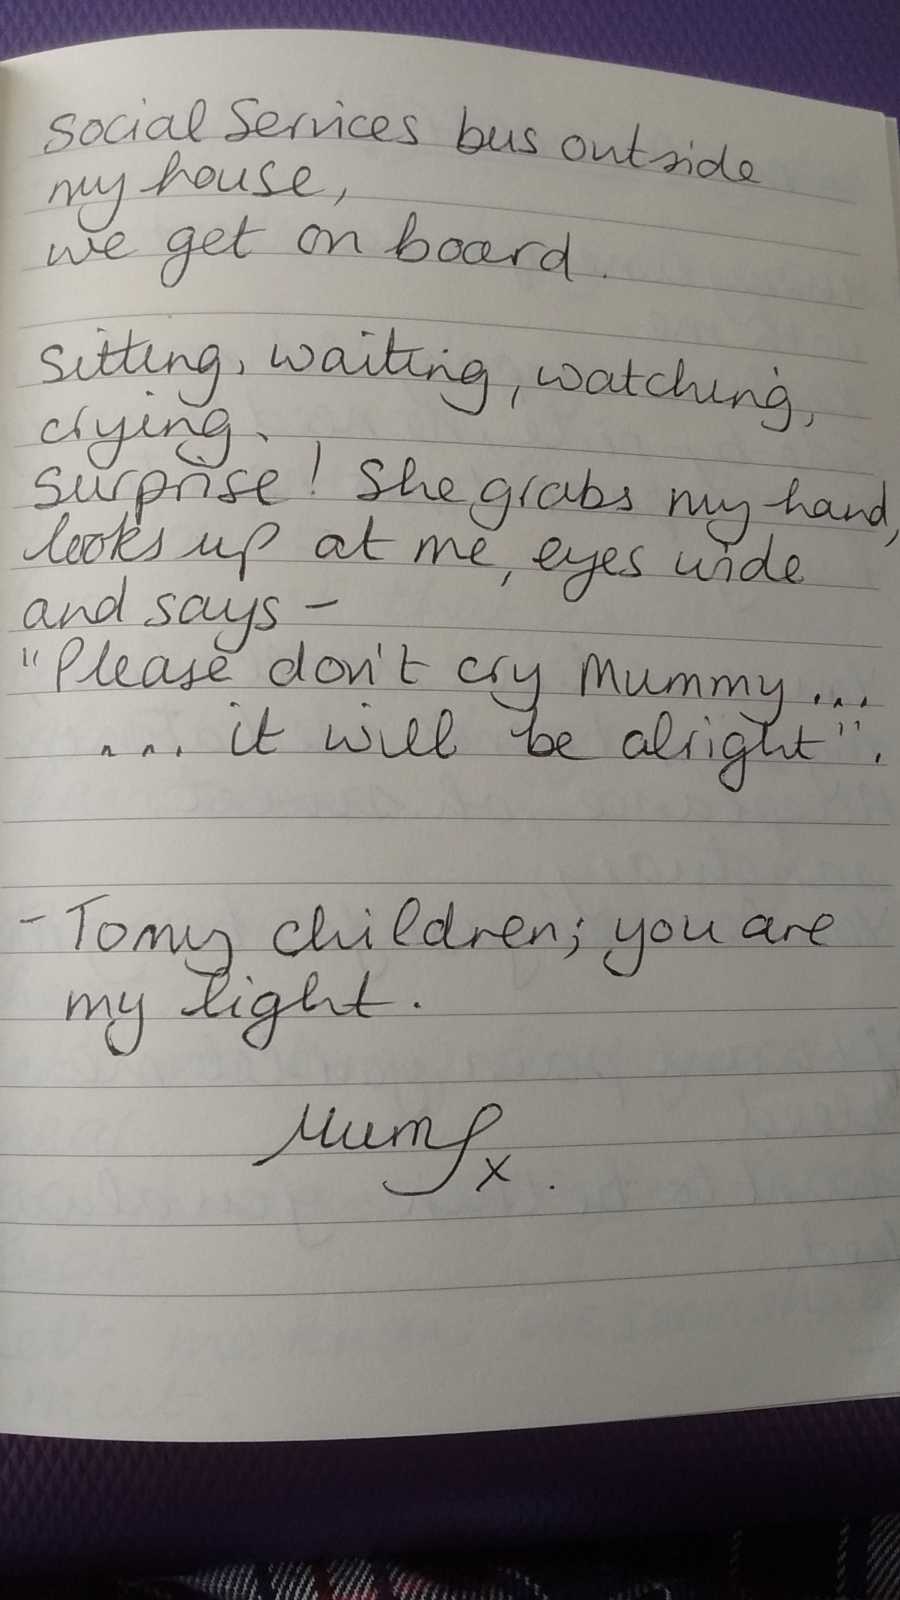 Social Services bus outside
my house,
we get on board.
Sitting, waiting, watching,
crying.
Surprise! She grabs my hand,
looks up at me, eyes wide
and says -
"Please don't cry Mummy...
... it will be alright".
- To my children; you are
my light.
Mum x.